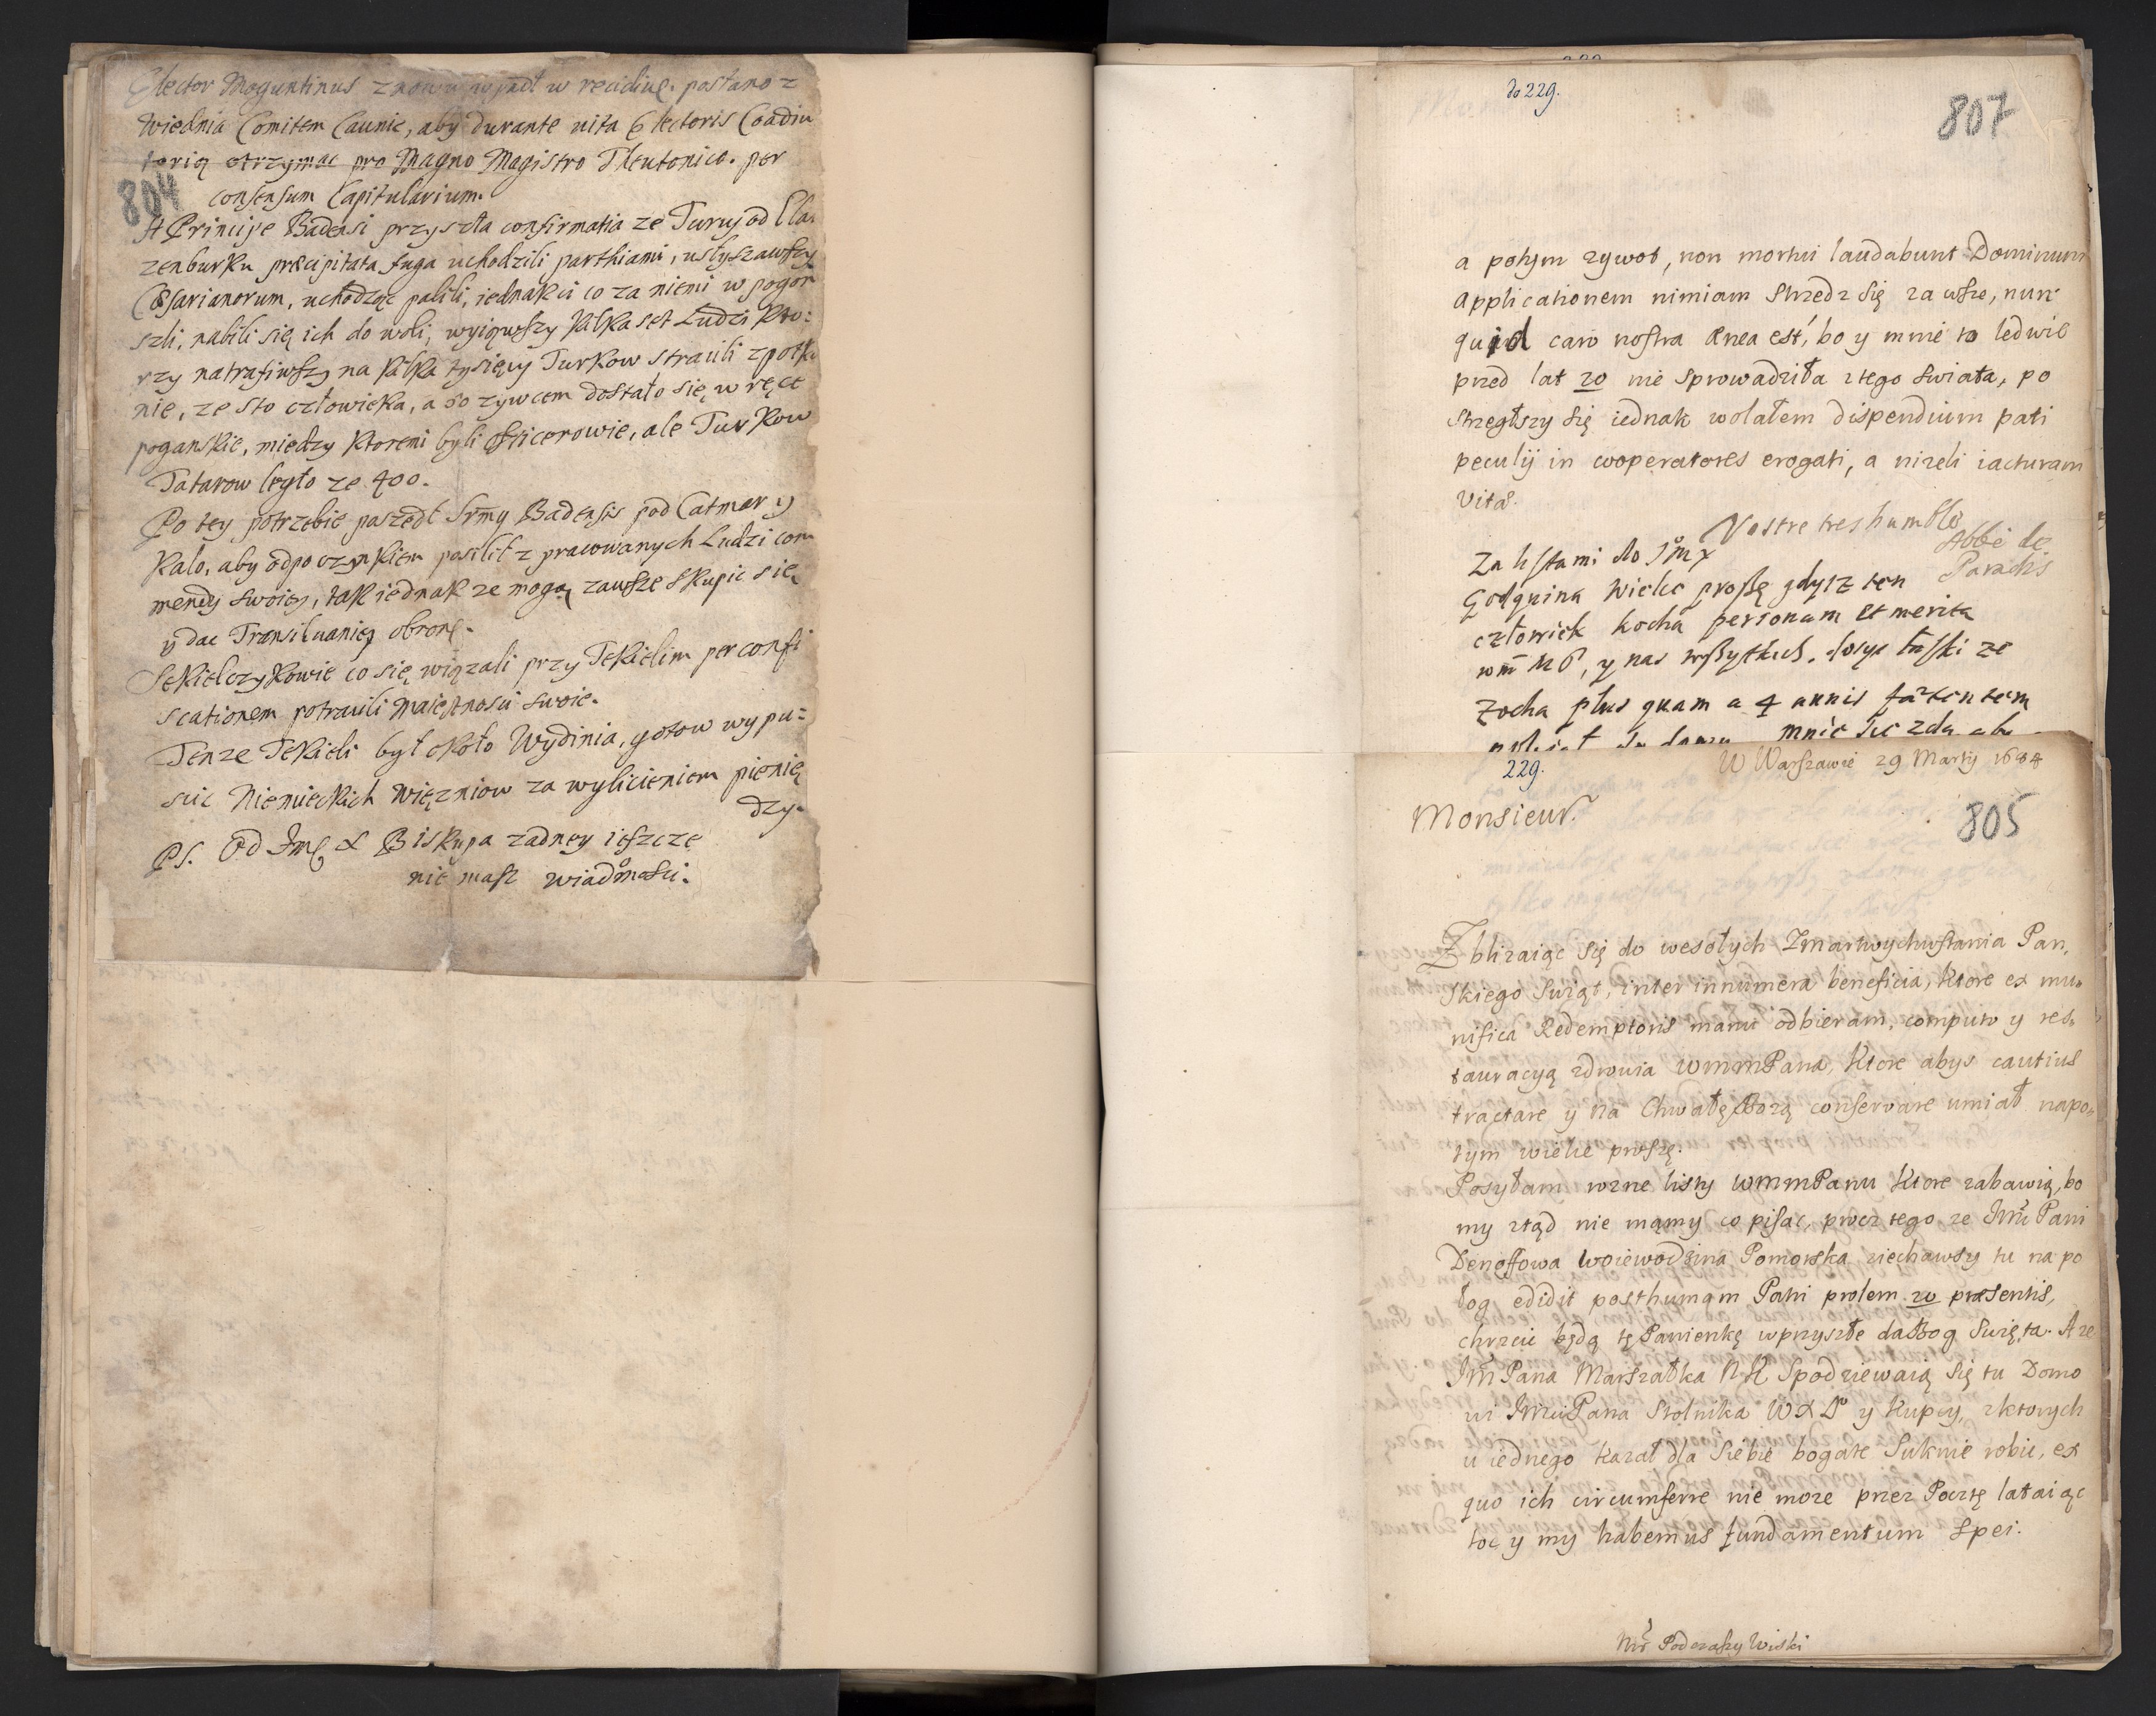 Elector Moguntinus znowu wpadł w recidiuę. posłano z
Wiednia Comitem Caunic, aby durante uita Electoris Coadiu
torią otrzymac pro Magno Magistro Theutonico. per
consensum Capitularium.
804
A Principe Badensi przyszła confirmatia ze Turcy od Clau
zenburku præcipitata fuga uchodzili parthiami, usłyszawszy
Cæsarianorum, uchodząc palili, iednak ci co za niemi w pogon
szli, nabili się ich do woli, wyiąwszy kilka set Ludzi kto:
rzy natrafiwszy na kilka tysięcy Turkow stracili z potka
nie, ze sto człowieka, a 80 zywcem dostało się w ręce
poganskie, miedzy ktoremi byli officerowie, ale Turkow
Tatarow legło ze 400.
Po tey potrzebie poszedł Srmg Badensis pod Catmar y
Kalo, aby odpoczynkiem posilił z pracowanych Ludzi com
mendy swoiey, tak iednak ze mogą zawsze skupic się
y dac Transiluaniey obronę.
Sekielczykowie co się wiązali przy Tekielim per confi
scationem potracili maiętnosci swoie.
Tenze Tekieli był około Wydinia, gotow wypu:
scic Niemieckich więzniow za wyliczeniem pienię
dzy.
PS. Od Jmć X Biskupa zadney ieszcze
nie masz wiadomosci.
do 229.
807
a potym zywot, non mortui laudabunt Dominum
Applicationem nimiam strzedz się zawsze, nun
quid caro nostra ænea est, bo y mnie to ledwie
przed lat 20 nie sprowadziła z tego swiata, po
strzegłszy się iednak wolałem dispendium pati
peculij in cooperatores erogati, a nizeli iacturam
vitæ.
Vostre tres humble
Abbé de
Paradis
Za listami do Jm x
Godquina wielce proszę gdysz ten
człowiek kocha personam et merita
wm MP, y nas wszytkich, dosyc łaski ze
Zocha plus quam a 4 annis
mnie się zda aby
229.
W Warszawie 29 Marty 1684
Monsieur.
805
Zblizaiąc się do wesołych Zmartwychwstania Pan,
skiego swiąt, inter innumera beneficia, ktore ex mu,
nifica Redemptoris manu odbieram, computo y res,
tauracyą zdrowia WMMPana, ktore abys cautius
tractare y na Chwałę Bozą conservare umiał napo,
tym wielce proszę.
Posyłam rozne listy WMMPanu ktore zabawią, bo
my ztąd nie mamy co pisac, procz tego ze Jmći Pani
Denoffowa woiewodzina Pomorska ziechawszy tu na po
łog edidit posthumam Patri prolem 20 præsentis,
chrzcic będą tę Panienkę w przyszłe da Bog swięta. A ze
Jm Pana Marszałka N K spodziewaią się tu Domo
wi Jmci Pana Stolnika W X L° y kupcy, z ktorych
u iednego kazał dla siebie bogate suknie robic, ex
quo ich circumferre nie moze przez Pocztę lataiąc
toc y my habemus fundamentum spei.
Podczaszy Wiski